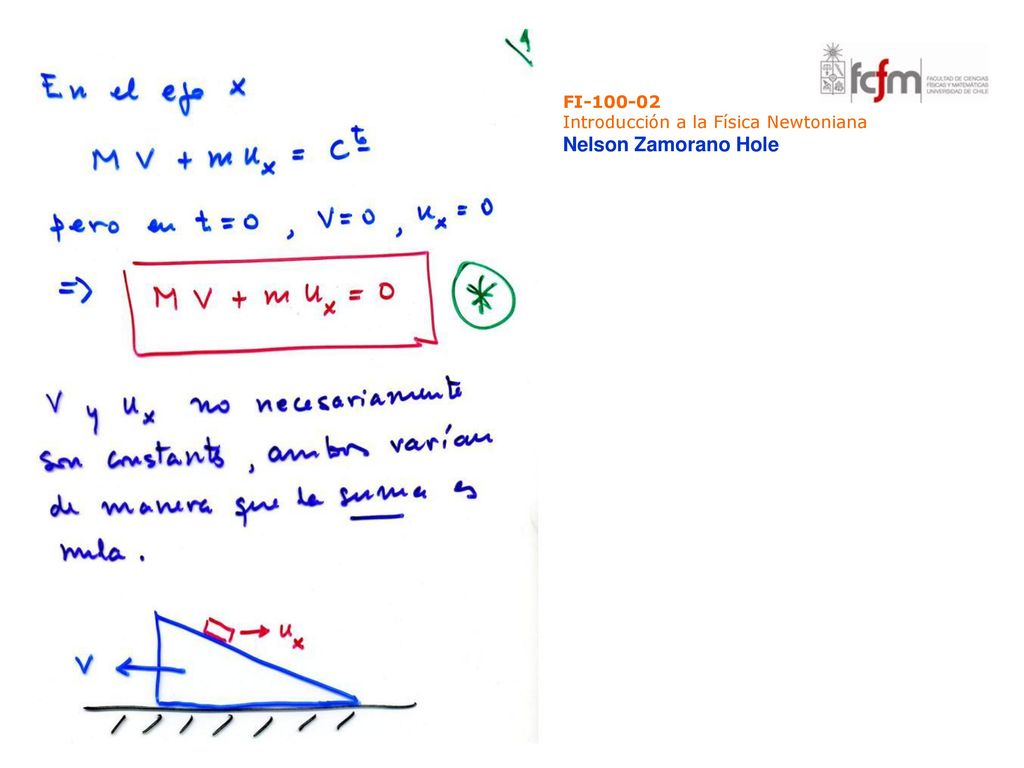 En el eje x
M V + m u_x = C^te
pero en t = 0 , V = 0 , u_x = 0
=> M V + m u_x = 0 *
V y u_x no necesariamente
son constants, ambos varían
de manera que la suma es
nula.
u_x
V
fcfm
FACULTAD DE CIENCIAS
FÍSICAS Y MATEMÁTICAS
UNIVERSIDAD DE CHILE
FI-100-02
Introducción a la Física Newtoniana
Nelson Zamorano Hole